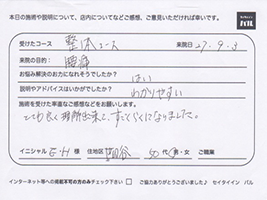 本日の施術や説明について、店内についてなどご感想、ご意見いただければ幸いです。
セイタイイン
バル
受けたコース 整体コース 来院日 27.9.3
来院の目的: 腰痛
お悩み解決のお力になれそうでしたか?
はい
説明やアドバイスはいかがでしたか?
わかりやすい
施術を受けた率直なご感想などをお願いします。
とても良く理解出来、すごくらくになりました。
イニシャル E.H 様 住地区 50代 男・女 ご職業
インターネット等への掲載不可の方のみチェック下さい □ ご協力ありがとうございました♪ セイタイイン バル